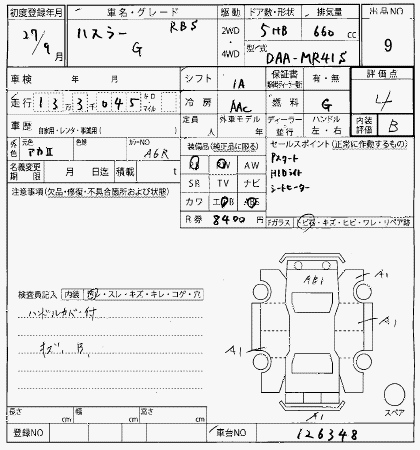 初度登録年月 車名・グレード 駆動 ドア数・形状 排気量 出品NO
27/9月 ハスラー RBS 2WD 5HB 660 cc 9
G 4WD 型式 DAA-MR41S
車検 年 月 シフト IA 保証書 有・無 評価点
走行 13万3千045 キロ マイル 冷房 AAC 燃料 G 4
車歴 自家用・レンタ・事業用( ) 定員 人 外車モデル 年 ディーラー 並行 ハンドル 左・右 内装 B
外色 元色 アカII 色替 カラーNO A6R 装備品(純正品に限る) セールスポイント(正常に作動するもの)
名義変更期限 月 日迄 積載 t
SR TV ナビ
カワ
R券 8400 円
HIDライト
シートヒーター
注意事項(欠品・修復・不具合箇所および状態)
Fガラス トビ石・キズ・ヒビ・ワレ・リペア跡
検査員記入 内装 ・スレ・キズ・キレ・コゲ・穴
ハンドルカバー付
キズ、B、
A1
A1
A1
A1
スペア
長さ cm 幅 cm 高さ cm
登録NO 車台NO 126348